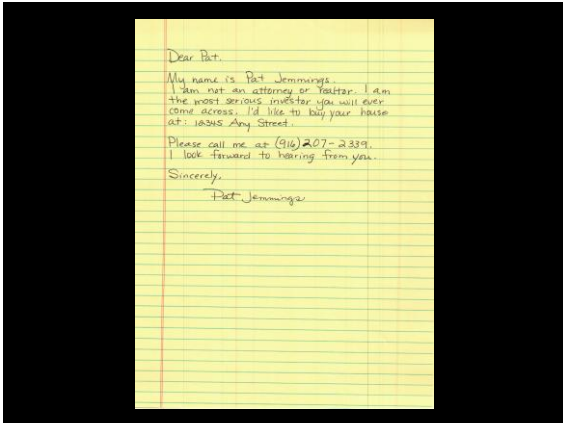 Dear Pat,
My name is Pat Jemmings.
I am not an attorney or realtor. I am
the most serious investor you will ever
come across. I'd like to buy your house
at: 12345 Any Street.
Please call me at (916) 207-2339.
I look forward to hearing from you.
Sincerely,
Pat Jemmings